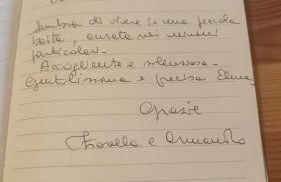 Sembra di vivere in una piccola
baita, curata nei minimi
particolari.
Accogliente e silenziosa.
Gentilissima e precisa Elena.
Grazie
Fiorella e Armando